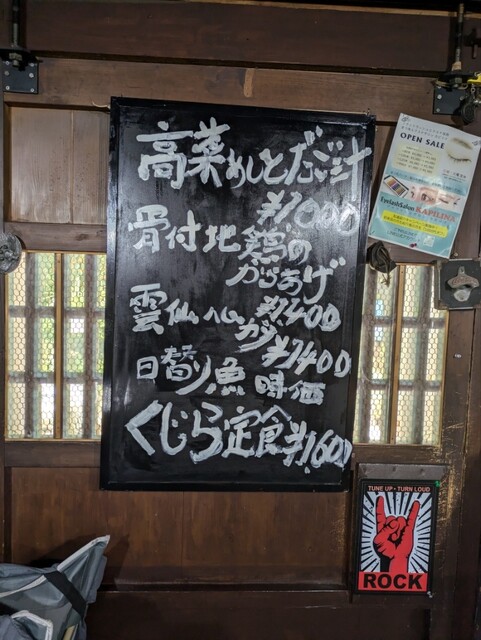 高菜めしとだご汁
¥1000
骨付地鶏の
からあげ
¥1400
雲仙ハム カツ
¥1400
日替り魚 時価
くじら定食 ¥1600
OPEN SALE
EyelashSalon
RAPELINA
TUNE UP・TURN LOUD
ROCK